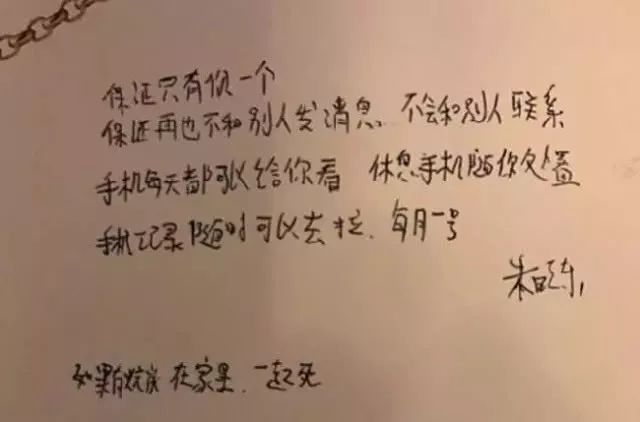 保证只有你一个
保证再也不和别人发消息 不会和别人联系
手机每天都可以给你看 休息手机随你处置
手机记录随时可以去拉、每月一号
朱晓东
如果有炸 在家里、一起死